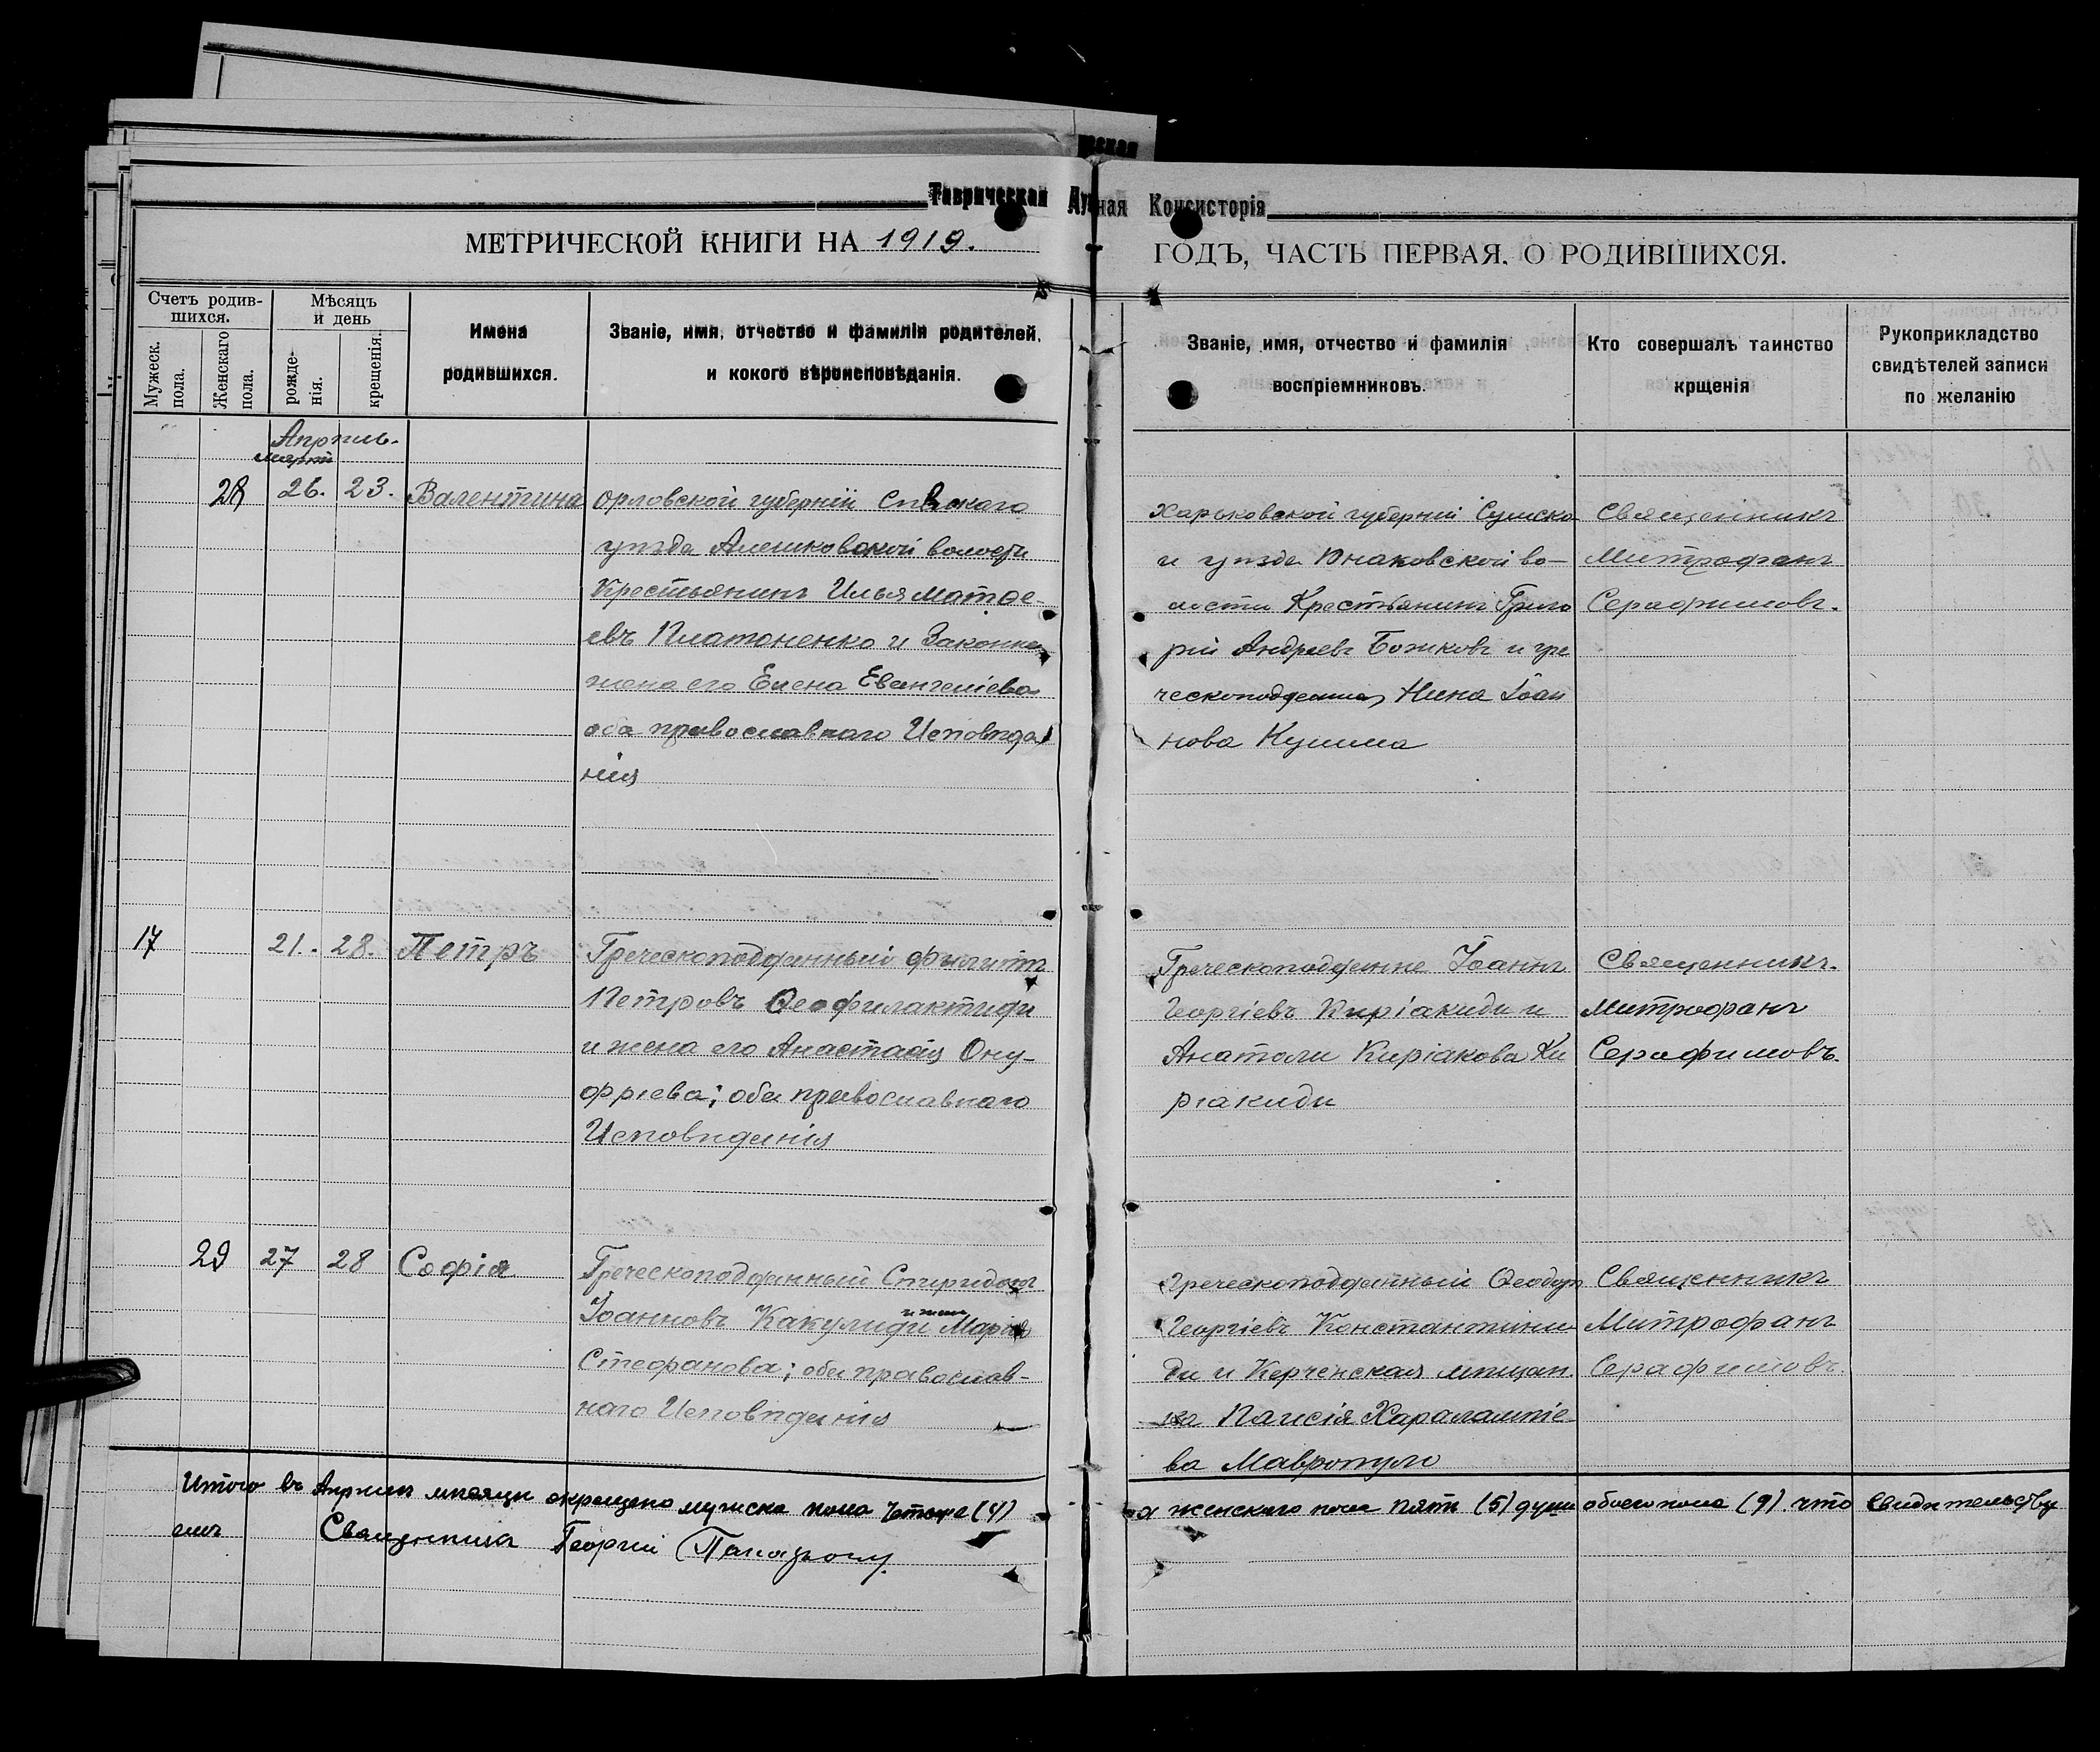 Таврическая Духная Консисторія
МЕТРИЧЕСКОЙ КНИГИ НА 1919.
ГОДЪ, ЧАСТЬ ПЕРВАЯ, О РОДИВШИХСЯ.
Счетъ родив-
шихся.
Мужеск.
пола.
Женскаго
пола.
Мѣсяцъ
и день
рожде-
нія.
крещенія.
Имена
родившихся.
Званіе, имя, отчество и фамилія родителей,
и кокого вѣроисповѣданія.
Званіе, имя, отчество и фамилія
воспріемниковъ.
Кто совершалъ таинство
крщенія
Рукоприкладство
свидѣтелей записи
по желанію
Апрѣль.
Мартъ
28 26. 23. Валентина
Орловской губерніи Сѣвскаго
уѣзда Алешковской волости
Крестьянинъ Илья Матѳе-
евъ Платоненко и Законная
жена его Елена Евангеліева
оба православнаго Исповѣда
нія
Харьковской губерніи Сумска
и уѣзда Юнаковской во-
лости Крестьянинъ Григо
рій Андреевъ Божковъ и гре
ческоподданная Нина Іоан
нова
Священникъ
Митрофанъ
Серафимовъ.
17 21. 28. Петръ
Греческоподданный Филиппъ
Петровъ Ѳеофилактиди
и жена его Анастасія Ону-
фріева; оба православнаго
Исповѣданія
Греческоподданные Іоаннъ
Георгіевъ Киріакиди и
Анатоли Киріакова Ки
ріакиди
Священникъ.
Митрофанъ
Серафимовъ.
29 27 28 Софія
Греческоподданный Спиридонъ
Іоанновъ Какулиди и жена Марія
Стефанова; оба православ-
наго Исповѣданія
Греческоподданный Ѳеодоръ
Георгіевъ Константини
ди и Керченская мѣщан.
ка Паисія Харалампіе
ва Мавропуло
Священникъ
Митрофанъ
Серафимовъ.
Итого въ Апрѣлѣ мѣсяцѣ окрещено мужска пола Четыре (4)
а женскаго пола пять (5) души обоего пола (9). что Свидѣтельству
емъ Священникъ Георгій